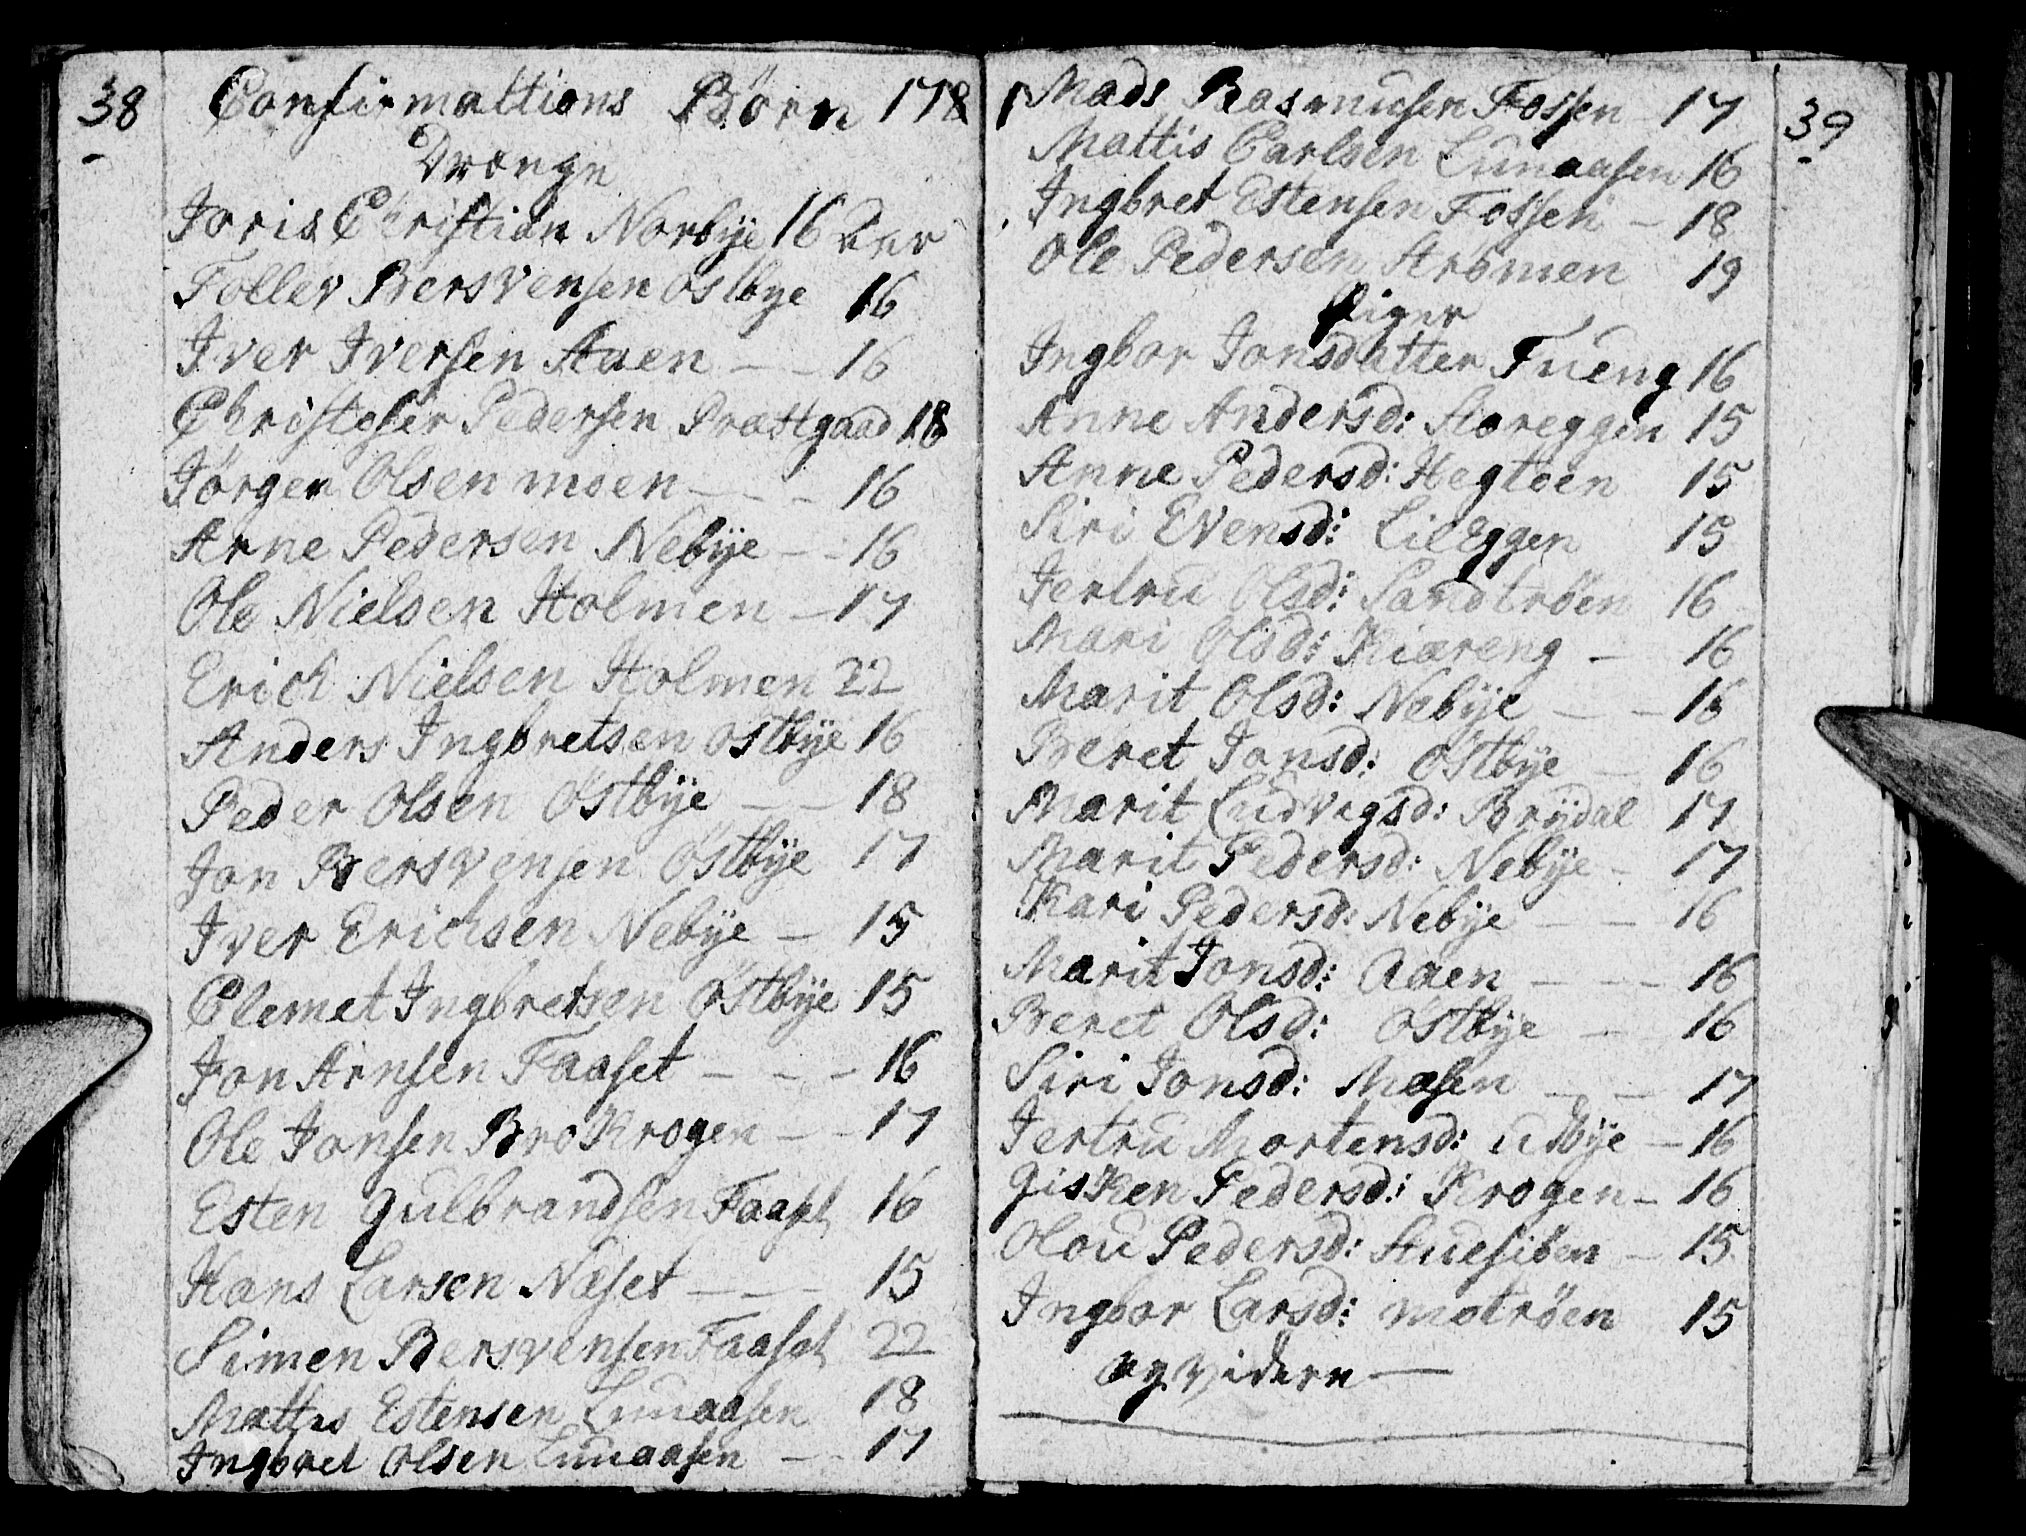 38
Confirmattions Börn 178
Drænge
Joris Christian Norbÿe 16 
Tollev Bersvensen östbÿe 16
Iver Iversen Aaen - - 16
Christofer Pedersen Præstgaad 18
Jörgen Olsen moen - - - 16
Arne Pedersen Nebÿe - - 16
Ole Nielsen Holmen - 17
Erich Nielsen Holmen 22
Anders Ingbretsen östbÿe 16
Peder Olsen östbÿe - - 18
Jon Bersvensen östbÿe 17
Iver Erichsen Nebÿe - 15
Clemet Ingbretsen östbÿe 15
Jon Arnsen Faaset - - - 16
Ole Jonsen BroKrogen - - 17
Esten Gulbrandsen Faaset 16
Hans Larsen Næset - - - 15
Simen Bersvensen Faaset 22
Mattis Estensen Lunaasen 18
Ingbret Olsen Lunaasen - - 17
39
Mads Rasmusen Fossen - 17
Mattis Carlsen Lunaasen 16
Ingbret Estensen Fossen - 18
Ole Pedersen Strömen 19
Piger
Ingbor Jonsdatter Tueng 16
Anne Andersd: Storeggen 15
Anne Pedersd: Hegteen 15
Siri Evensd: LilEggen 15
Jertru Olsd: Sandtröen 16
Mari Olsd: Kiæreng - 16
Marit Olsd: Nebÿe - - 16
Beret Jonsd: östbÿe - 16
Marit Ludvigsd: Brÿdal 17
Marit Pedersd: Nebÿe - 17
Kari Pedersd: Nebÿe - - 16
Marit Jonsd: Aaen - - - 16
Beret Olsd: östbÿe - 16
Siri Jonsd: Mosen - - 17
Jertru Mortensd: udbÿe - 16
Gisken Pedersd: Krogen - 16
Olou Pedersd: Stuesiben - 15
Ingbor Larsd: motröen 15
og videre -